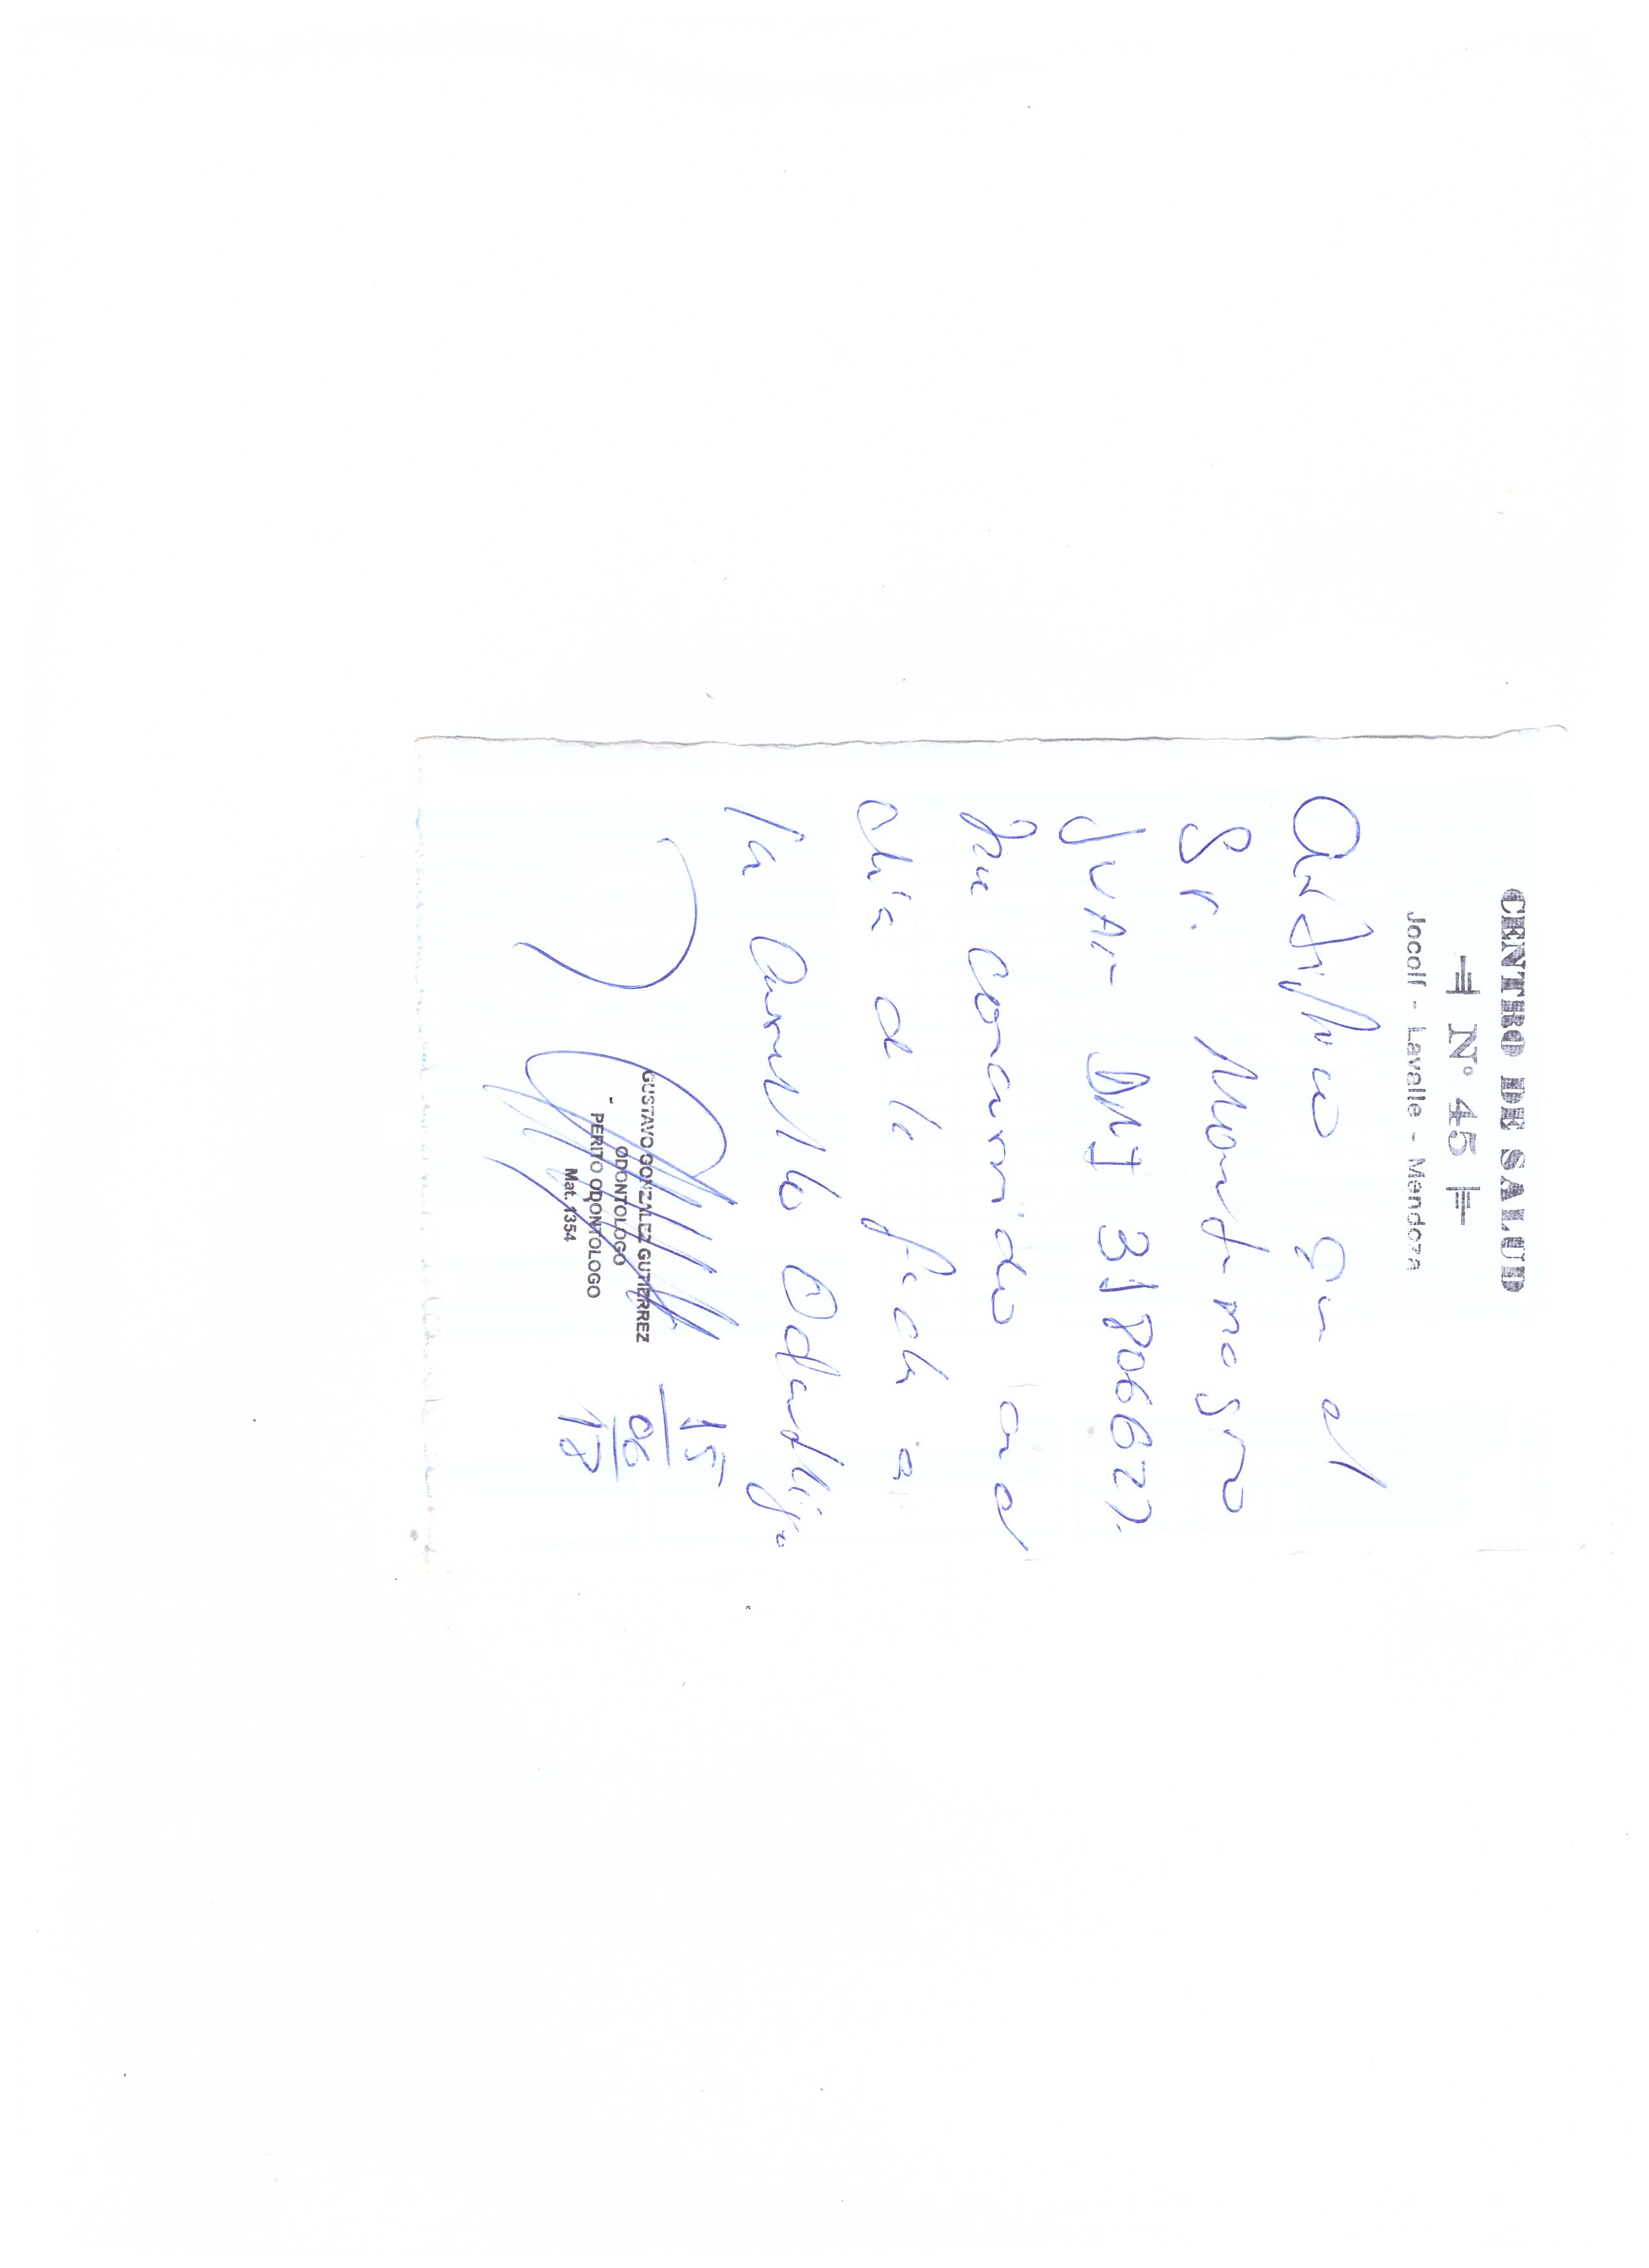 CENTRO DE SALUD
N° 45
Jocolí - Lavalle - Mendoza
Certifico que el
Sr. Montenegro
Juan DNI 31806627.
ha concurrido en el
día de la fecha a
la consulta Odontológica
GUSTAVO GONZALEZ GUTIERREZ
ODONTOLOGO
PERITO ODONTOLOGO
Mat. 1354
15
06
18